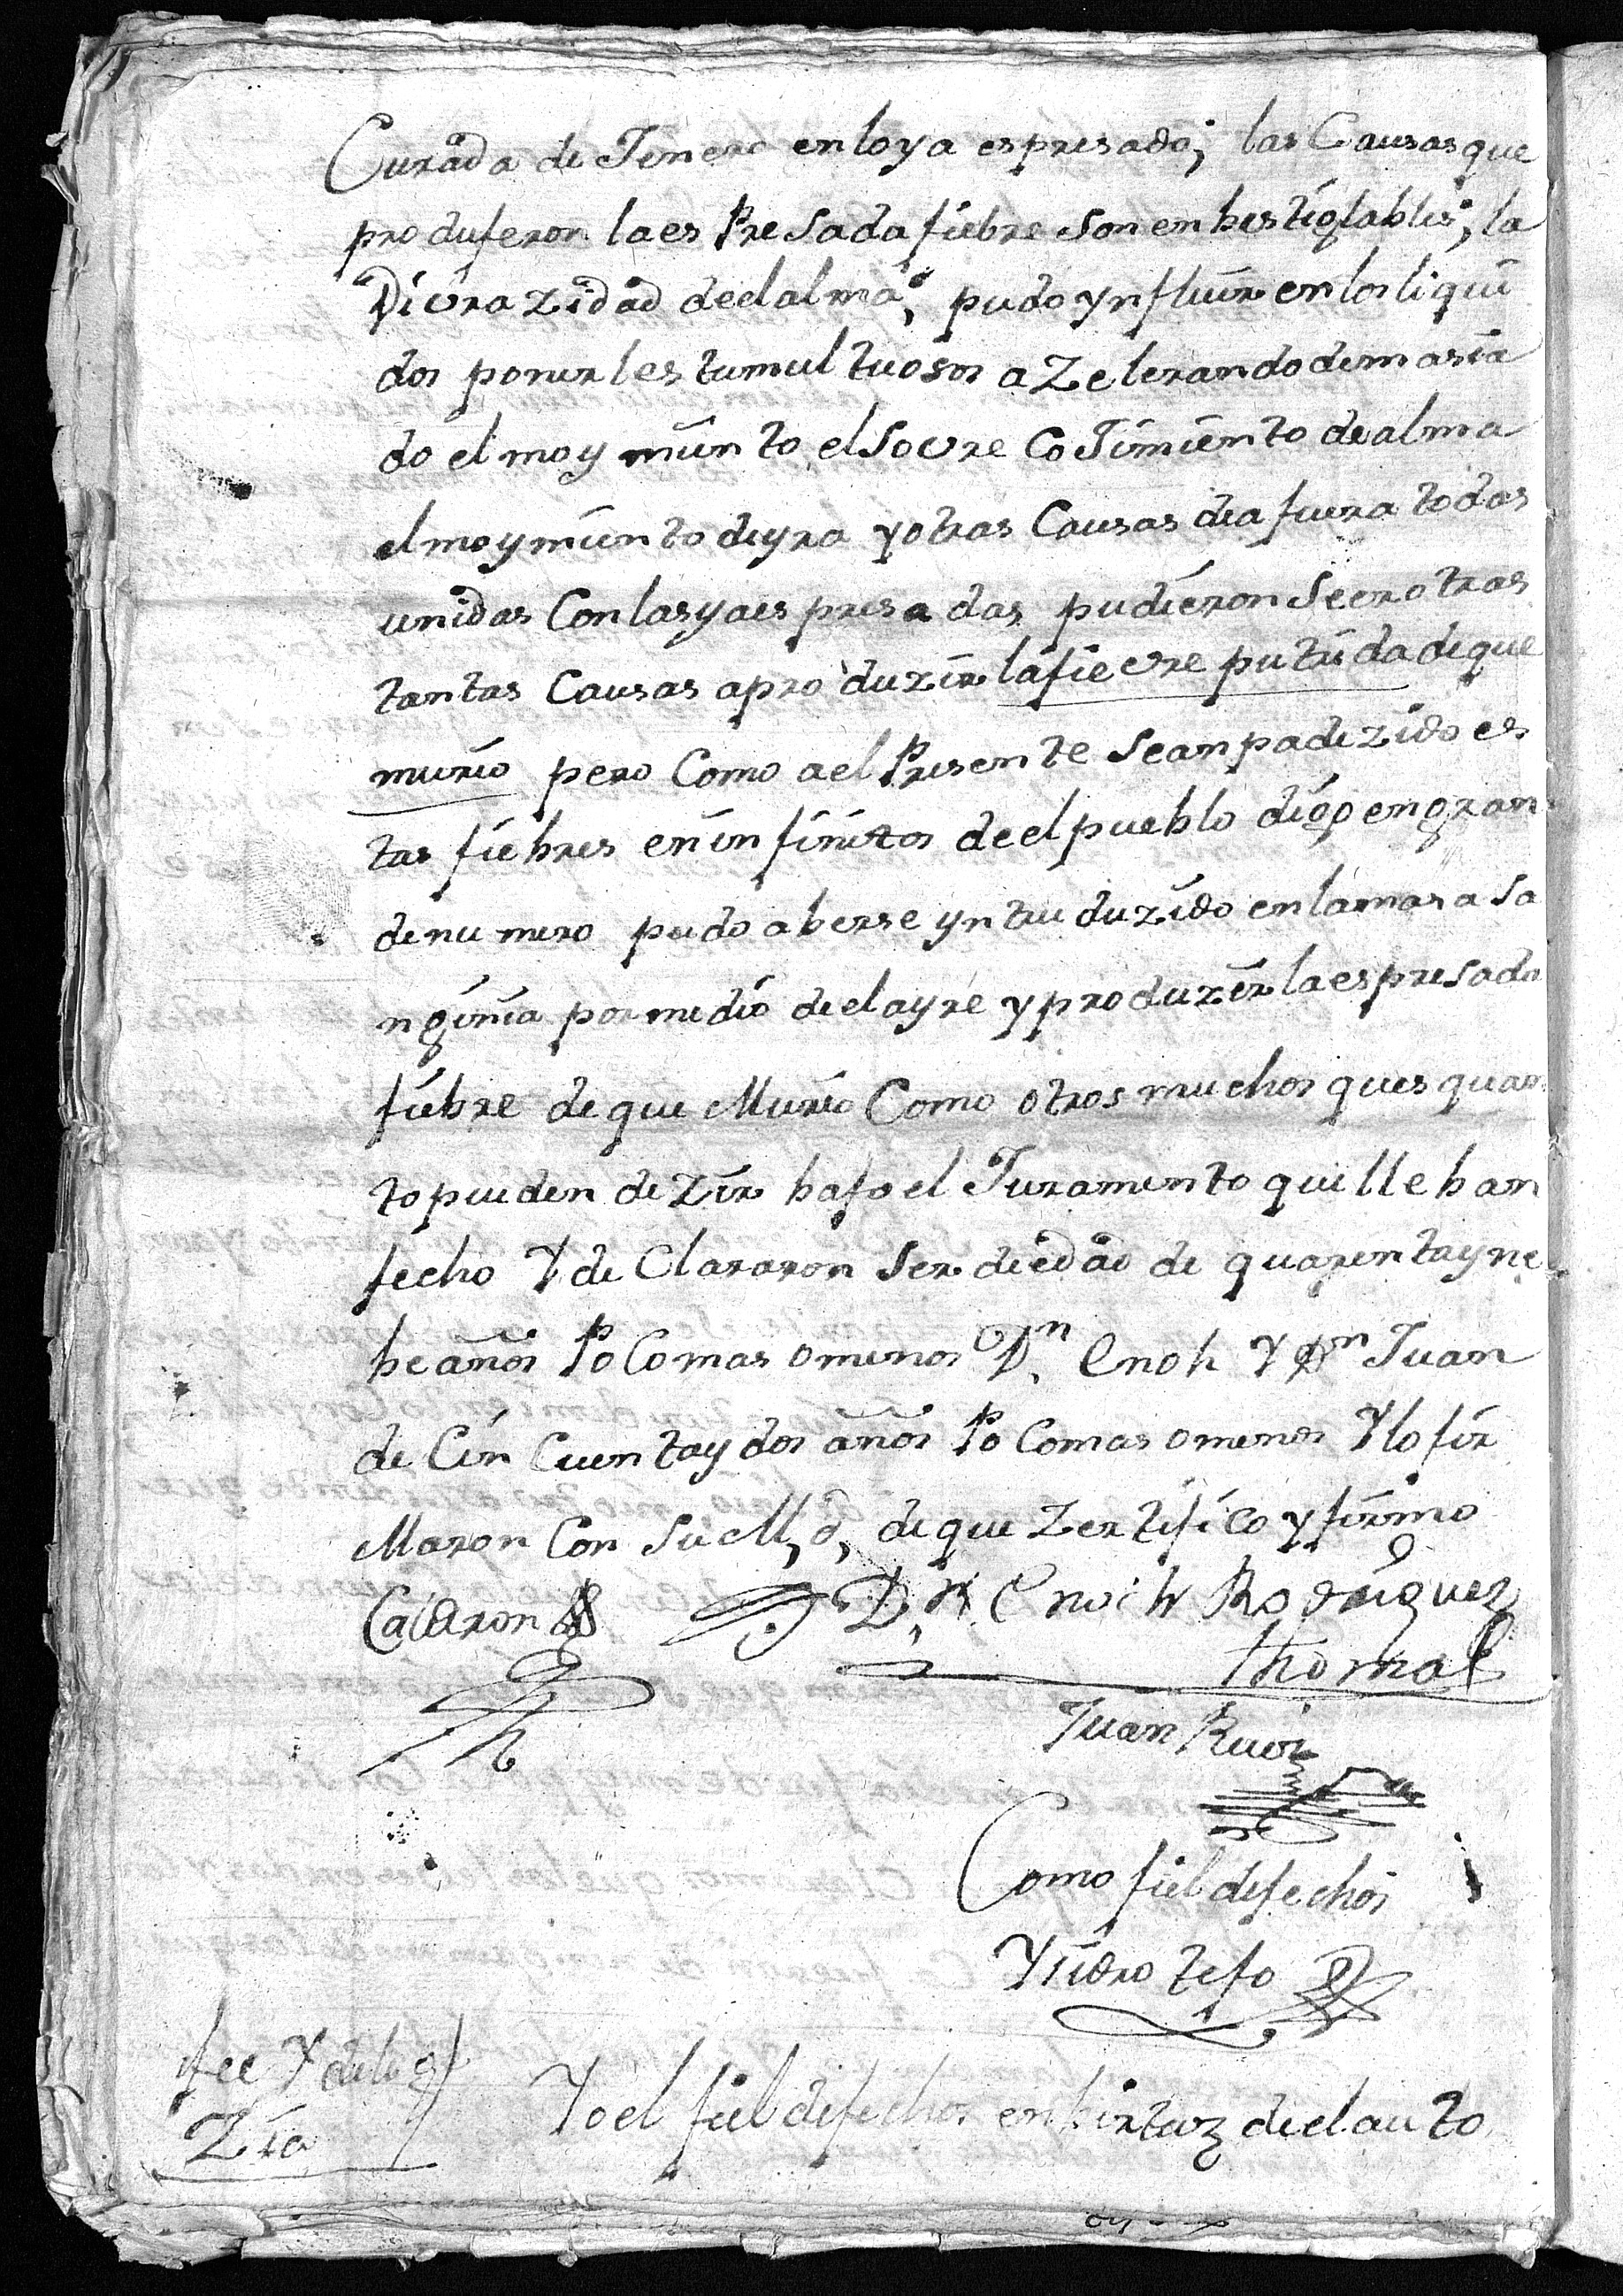 Curada de Tenere en lo ya espresado; las Causas que
produjeron la es Presada fiebre son enbestigables; la
Vibrazidad de el alma, pudo ynfluir en los liqui
dos ponerles tumultuosos azelerando demasia
do el moymiento el Sovre Cojimiento de alma
el moymiento de yra y otras Causas de afuera todas
unidas Con las ya espresadas pudieron Seer otras
tantas Causas aproduzir la fievre putrida de que
murio pero Como a el Presente Se an padezido es
tas fiebres en infinitos de el pueblo digo en gran
de numero pudo aberse yntruduzido en la masa Sa
nginia por medio de el ayre y produzir la espresada
fiebre de que Murio Como otros muchos que es quan
to pueden dezir bajo el Juramento que lleban
fecho Y de Clararon Ser de edad de quarenta y nue
be años Poco mas o menos Dn. Enoh Y Dn Juan
de Cin Cuenta y dos años Poco mas o menos Y lo fir
Maron Con Su M,d, de que Zertifico y firmo
Calderon Dn Enoch Rodriguez
thomas
Juan Ruiz
Como fiel de fechos
Ysidro tejo
fee Y dilig
Zia
Yo el fiel de fechos en birtuz de el auto